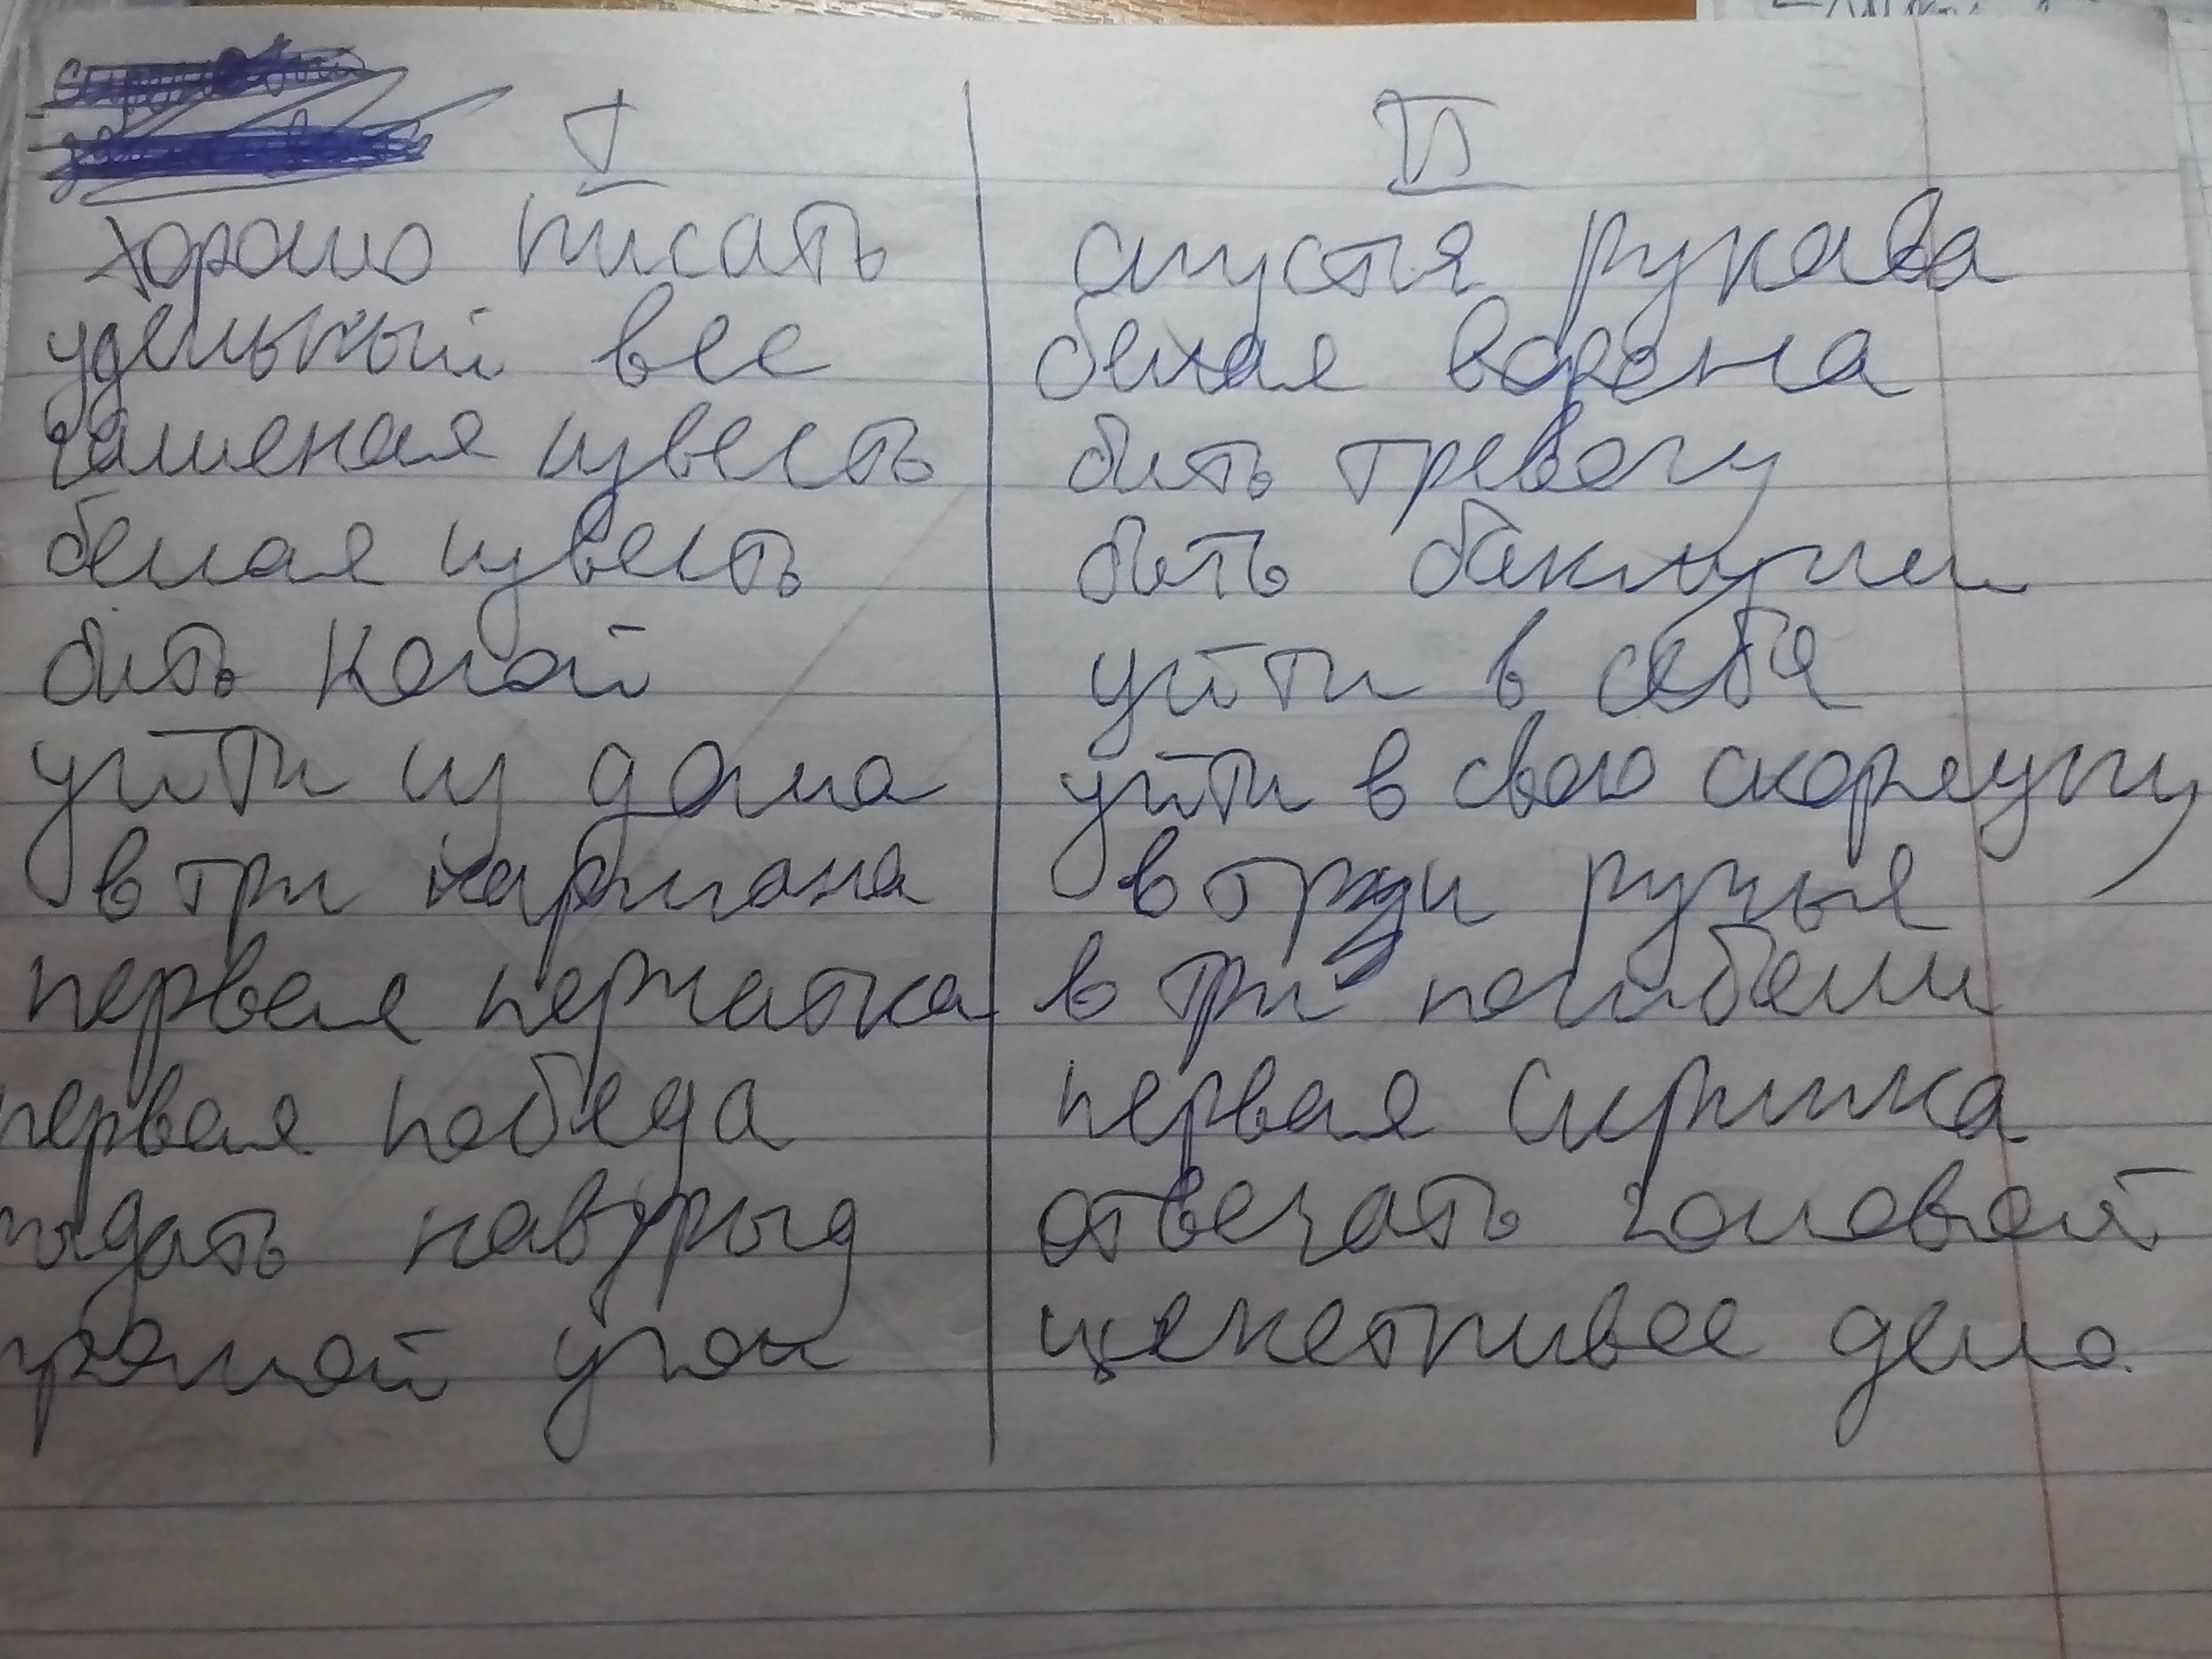 I
хорошо писать
удельный вес
гашеная известь
белая известь
бить ногой
уйти из дома
в три кармана
первая перчатка
первая победа
рыдать навзрыд
прямой угол
II
спустя рукава
белая ворона
бить тревогу
бить баклуши
уйти в себя
уйти в свою скорлупу
в три ручья
в три погибели
первая скрипка
отвечать головой
щекотливое дело.